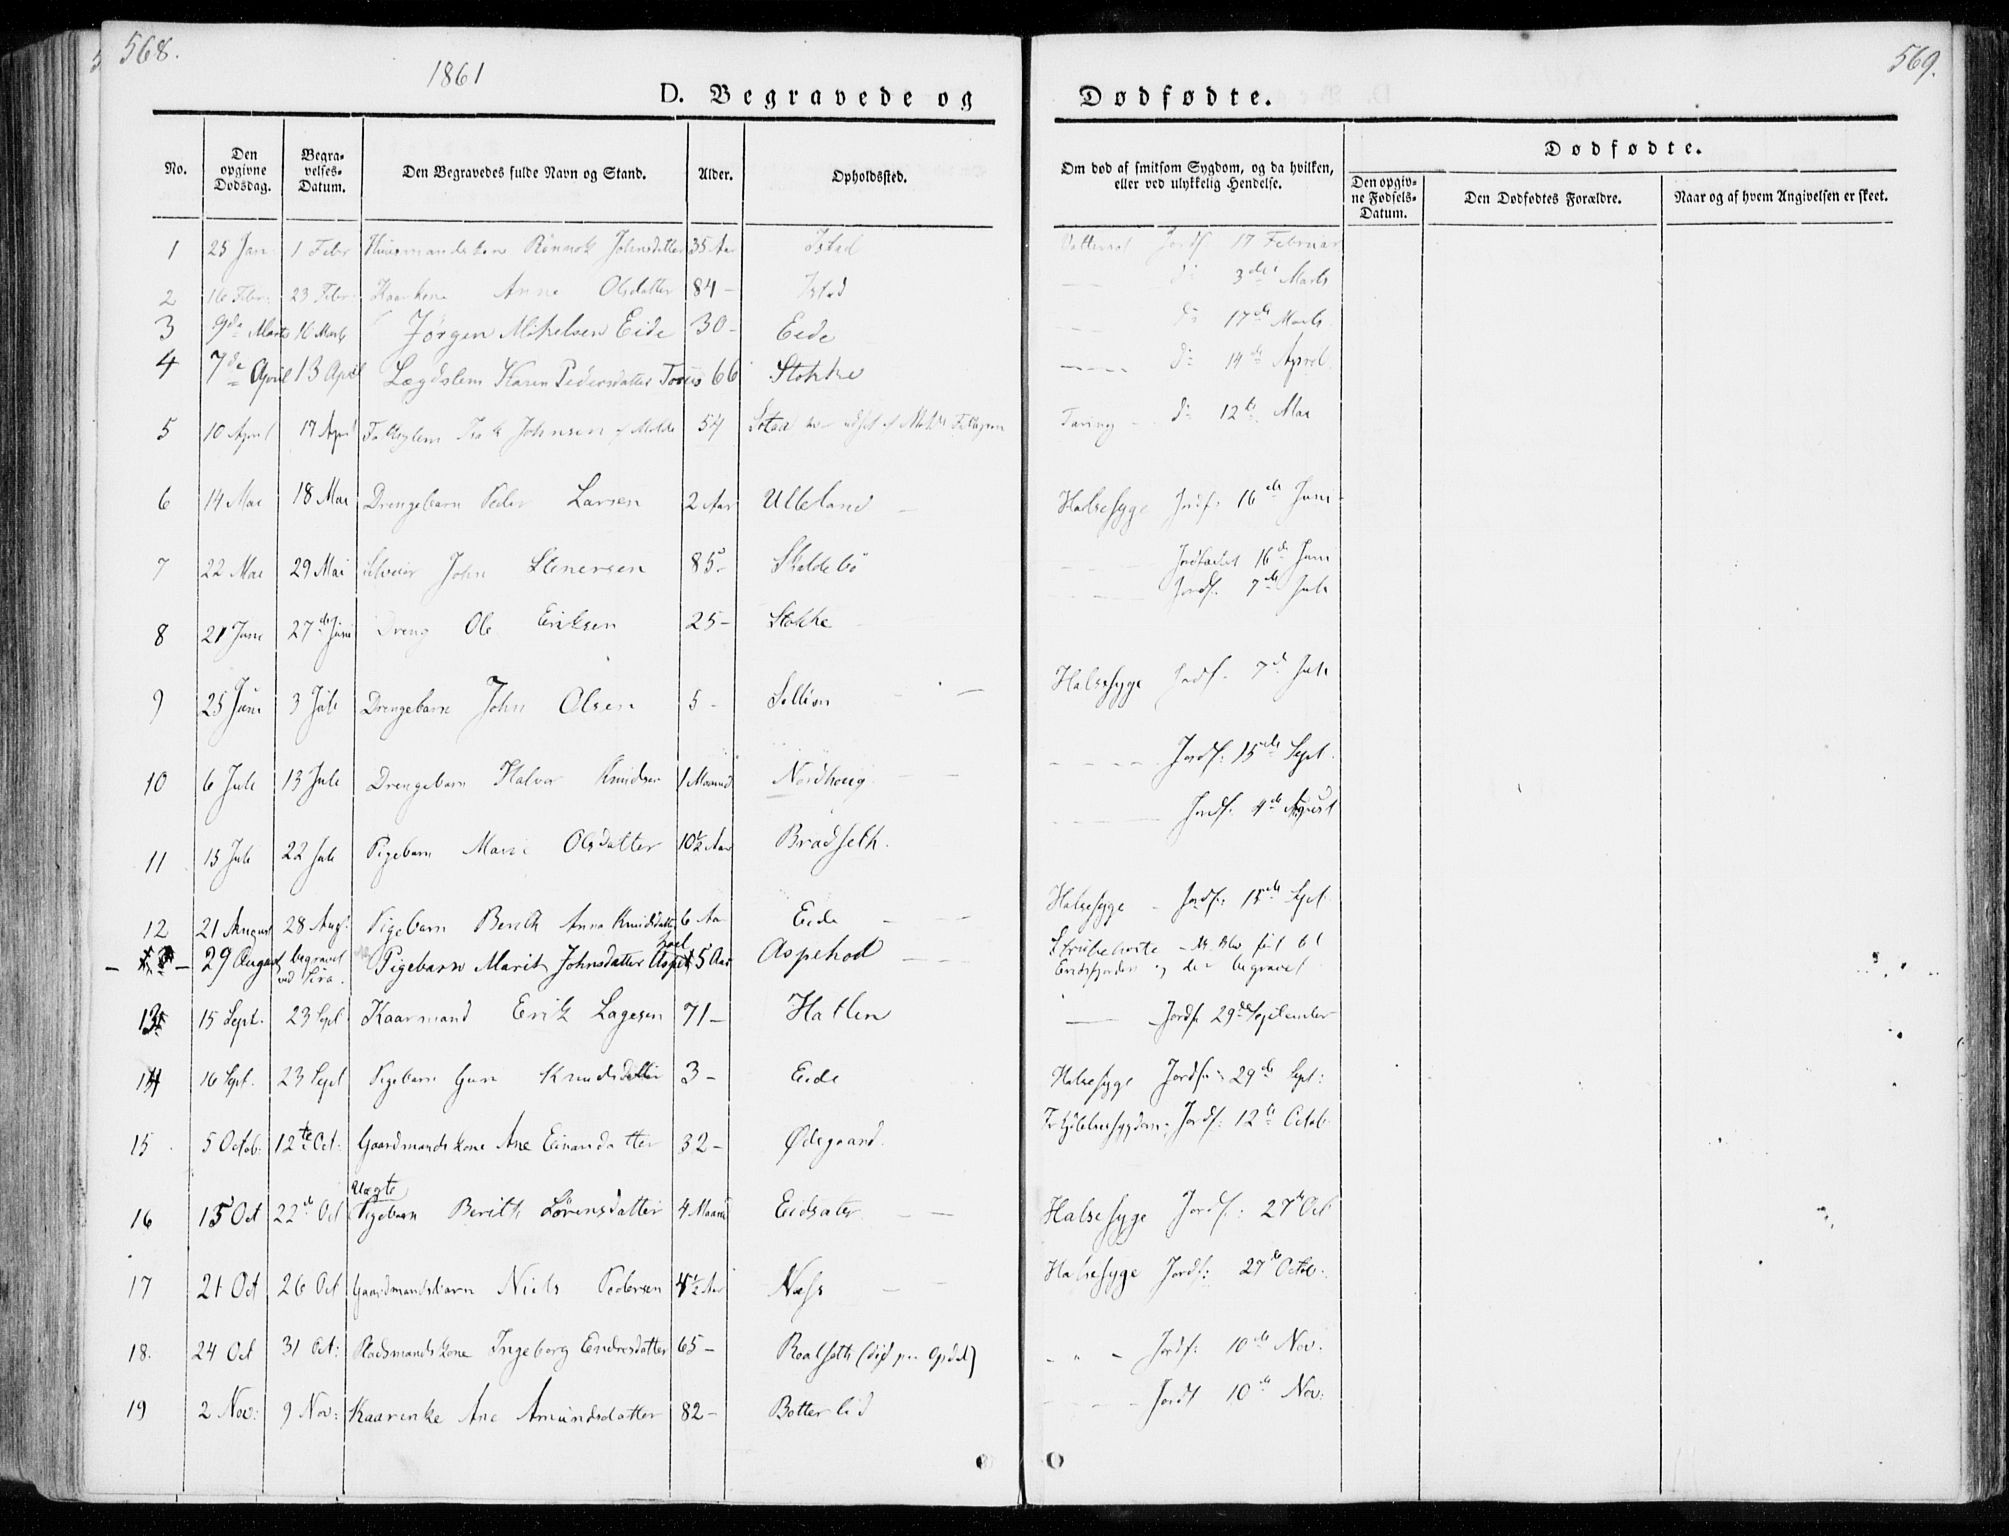 568.
1861
D. Begravede og
Dødfødte.
569.
No.
Den opgivne Dødsdag.
Begravelses-Datum.
Den Begravedes fulde Navn og Stand.
Alder.
Opholdssted.
Om død af smitsom Sygdom, og da hvilken, eller ved ulykkelig Hendelse.
Dødfødte.
Den opgivne Fødsels-Datum.
Den Dødfødtes Forældre.
Naar og af hvem Angivelsen er skeet.
1 25 Jan 1 Febr Johnsdatter 35 Aar Istad Jordf. 17 Februar
2 16 Febr: 23 Febr: Anne Olsdatter 84 - Istad d: 3die Marts
3 9de Marts 16 Marts Jørgen Mikelsen Eide 30 - Eide d: 17de Marts
4 7de April 13 April Lægdslem Karen Pedersdatter 66 Stokke d: 14de April
5 10 April 17 April Johnsen af Molde 54 Tæring - d: 12te Mai
6 14 Mai 18 Mai Drengebarn Peder Larsen 2 Aar Ulleland Halsesyge Jordf: 16de Juni
7 22 Mai 29 Mai John Stenersen 85 - Skoldebö Jordfæstet 16de Juni
8 21 Juni 27de Juni Dreng Ole Eriksen 25 - Stokke Jordf. 7de Juli
9 25 Juni 3 Juli Drengebarn John Olsen 5 - Sollien Halsesyge Jordf. 7de Juli
10 6 Juli 13 Juli Drengebarn Halvor Knudsen 1 Maaned Nordhoug Jordf: 15de Sept.
11 15 Juli 22 Juli Pigebarn Marie Olsdatter 10½ Aar Bradseth. Jordf. 4de August
12 21 August 28 Aug. Pigebarn Berith Anna Knudsdatter 6 Aar Eide Halsesyge - Jordf: 15de Sept.
29 August begravet ved Pigebarn Marit Johnsdatter 5 Aar Aspehool Strubehoste - begravet
13 15 Sept. 23 Sept Kaarmand Erik Lagesen 71 - Hatlen Jordf. 29de September
14 16 Sept. 23 Sept Pigebarn Guri Knudsdatter 3 - Eide Halsesyge Jordf: 29de Sept:
15 5 Octob: 12te Oct. Gaardmandskone Ane Einansdatter 32 - Ødegaard. Jordf: 12te Octob.
16 15 Oct 22de Oct Uægte Pigebarn Berith Sörensdatter 4 Maaned Eidsæter Halsesyge Jordf: 27de Oct
17 21 Oct 26 Oct Gaardmandsbarn Niels Pedersen 4½ Aar Næss Halsesyge Jordf: 27de Octob.
18. 24 Oct 31 Oct: Pladsmandskone Ingeborg Endresdatter 65 - Jordf: 10de Nov.
19 2 Nov: 9 Nov: Kaarenke Ane Amundsdatter 82 - Botterlid Jordf 10de Nov: